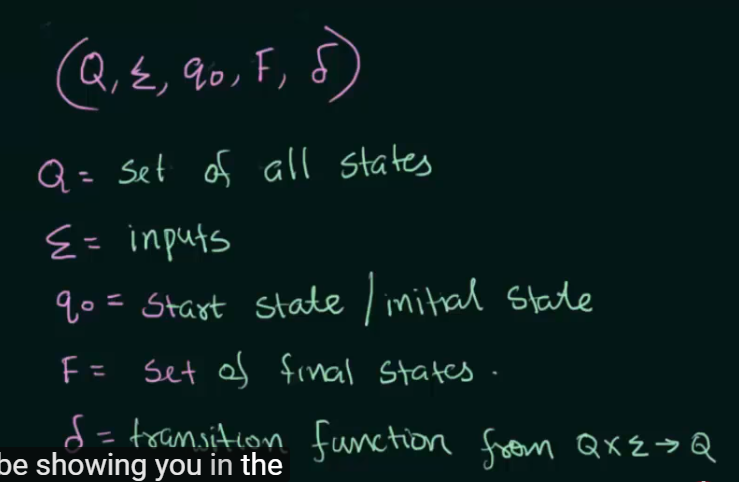 (Q, Σ, q0, F, δ)
Q = set of all states
Σ = inputs
q0 = Start state / initial state
F = set of final states.
δ = transition function from Q×Σ→Q
be showing you in the